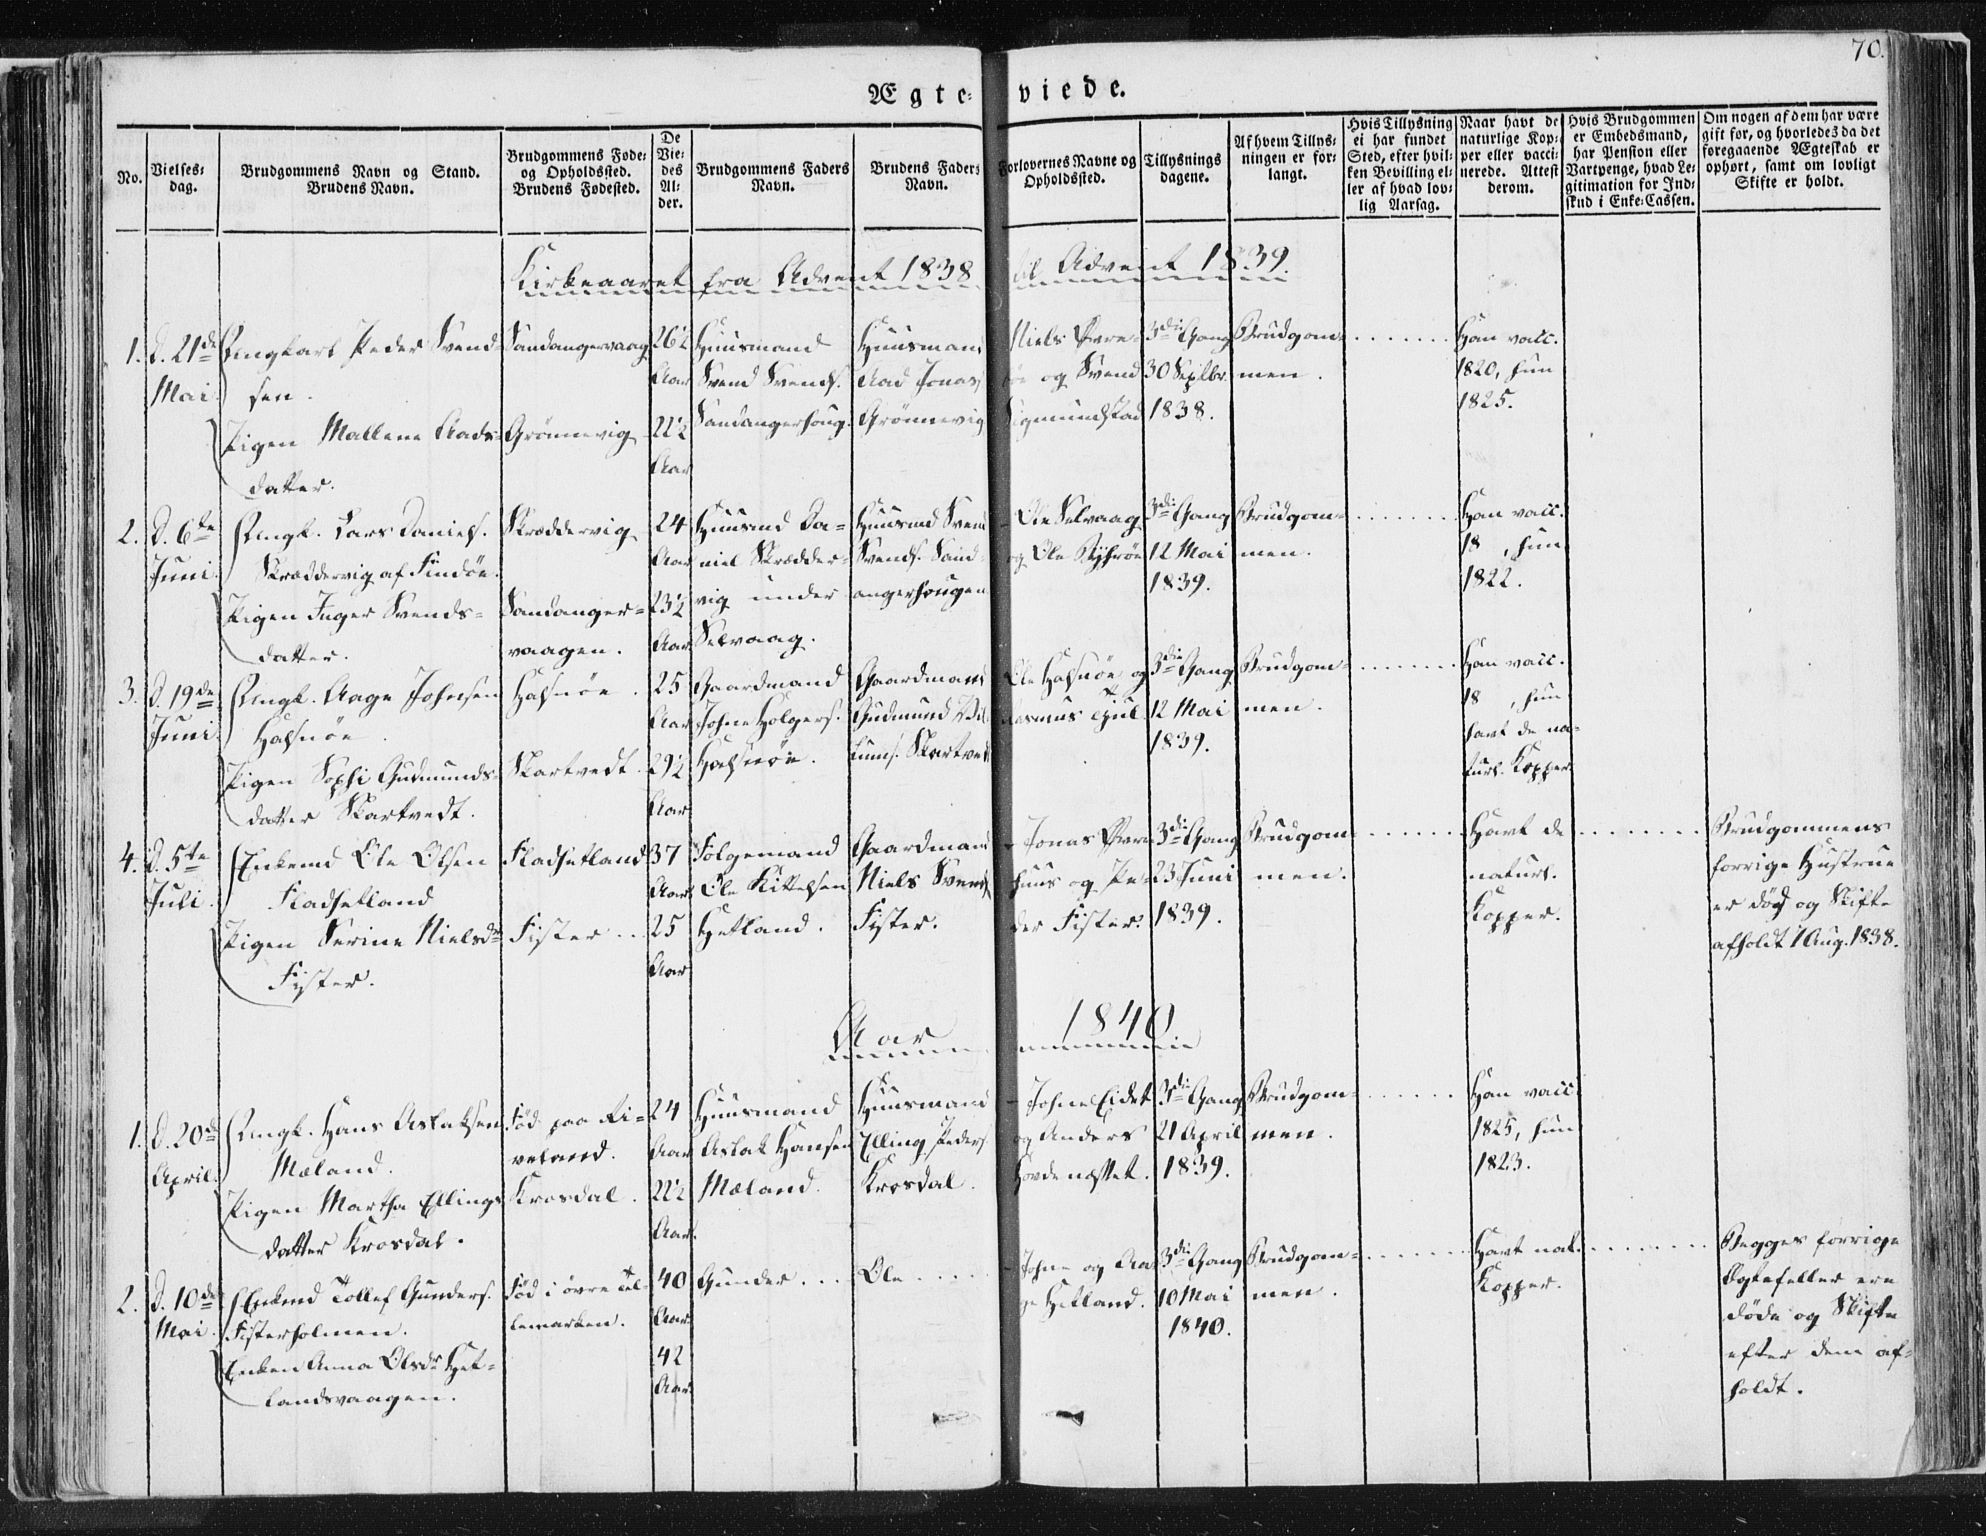 70.
Ægte-viede.
No.
Vielses-
dag.
Brudgommens Navn og Stand.
Brudens Navn.
Brudgommens Føde-
og Opholdssted.
Brudens Fødested.
De
Vie-
des
Al-
der.
Brudgommens Faders
Navn.
Brudens Faders
Navn.
Forlovernes Navne og
Opholdssted.
Tillysnings
dagene.
Af hvem Tillys-
ningen er for-
langt.
Hvis Tillysning
ei har fundet
Sted, efter hvil-
ken Bevilling el-
ler af hvad lov-
lig Aarsag.
Naar havt de
naturlige Kop-
per eller vacci-
nerede. Attest
derom.
Hvis Brudgommen
er Embedsmand,
har Pension eller
Vartpenge, hvad Le-
gitimation for Ind-
skud i Enke-Cassen.
Om nogen af dem har være
gift før, og hvorledes da det
foregaaende Ægteskab er
ophørt, samt om lovligt
Skifte er holdt.
Kirkeaaret fra Advent 1838 til Advent 1839.
1.
d. 21de
Mai
Ungkarl Peder Svend-
sen.
Pigen Mallene Aads-
datter.
Sandangervaag
Grønnevig
26½
Aar
22½
Aar
Huusmand
Svend Svends.
Sandangerhoug.
Huusmand
Aad Jonas
Grønnevig
Niels
og Svend
Sigmundstad
3die Gang
30 Septbr.
1838.
Brudgom-
men.
Han vacc.
1820, hun
1825.
2.
d. 6te
Juni.
Ungk. Lars Daniels.
Skræddervig af Findøe.
Pigen Inger Svends-
datter.
Skræddervig
Sandanger-
vaagen.
24
Aar
23½
Aar
Huusmd Da-
niel Skrædder-
vig under
Selvaag.
Huusmd Svend
Svends. Sand-
angerhougen
Ole Selvaag
og Ole
3die Gang
12 Mai
1839.
Brudgom-
men.
Han vacc.
18 , hun
1822.
3.
d. 19de
Juni
Ungk. Aage Johnsen
Halsnøe.
Pigen Sophi Gudmunds-
datter Skartvedt.
Halsnøe.
Skartvedt.
25
Aar
29½
Aar
Gaardmand
John Holgers.
Halsnøe.
Gaardmand
Gudmund
Skartved
Ole Halsnøe og
Rasmus
3die Gang
12 Mai
1839.
Brudgom-
men.
Han vacc.
18 , hun
havt de na-
turl. Kopper.
4.
d. 5te
Juli.
Enkemd Ole Olsen
Fladhetland
Pigen Serine Nielsdr
Fister.
Fladhetland
Fister
37
Aar
25
Aar
Følgemand
Ole Kittelsen
Hetland.
Gaardmand
Niels Svends
Fister.
Jonas
huus og Pe-
der Fister.
3die Gang
23 Juni
1839.
Brudgom
men.
Havt de
naturl.
Kopper.
Brudgommens
forrige Hustrue
er død og Skifte
afholdt 7 Aug. 1838.
Aar 1840.
1.
d. 20de
April.
Ungk. Hans Aslaksen
Mæland.
Pigen Martha Ellings
datter Krosdal.
Fød paa Ri-
veland.
Krosdal.
24
Aar
22½
Aar.
Huusmand
Aslak Hansen
Mæland.
Huusmand
Elling Peders
Krosdal.
John Eidet
og Anders
Hovdenæsset.
3die Gang
21 April
1839.
Brudgom-
men.
Han vacc.
1825, hun
1823.
2.
d. 10de
Mai.
Enkemd Tollef Gunders.
Fisterholmen.
Enken Anna Olsdr Het-
landsvaagen.
Fød i øvre Tel-
lemarken.
40
Aar.
42
Aar.
Gunder
Ole
John og Aa
ge Hetland.
3die Gang
10 Mai
1840.
Brudgom-
men.
Havt nat.
Kopper.
Begges forrige
Ægtefeller ere
døde og Skifte
efter dem af-
holdt.